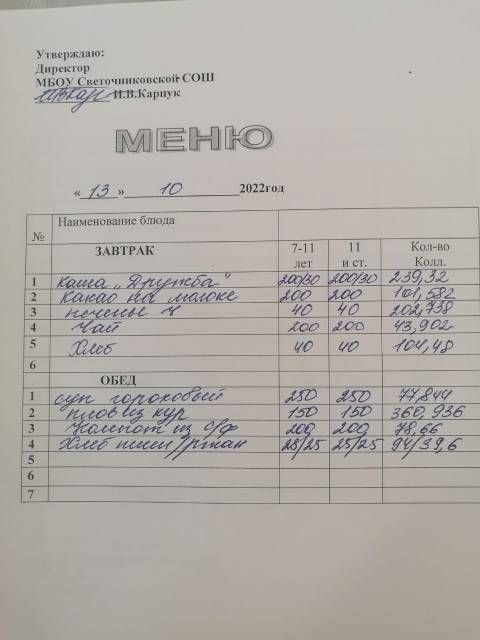 Утверждаю:
Директор
МБОУ Светочниковской СОШ
И.В.Карпук
МЕНЮ
« 13 » 10 2022год
№ Наименование блюда
ЗАВТРАК 7-11 лет 11 и ст. Кол-во Колл.
1 Каша „Дружба" 200/30 200/30 239,32
2 Какао на молоке 200 200 101,582
3 печенье 40 40 202,738
4 Чай 200 200 43,902
5 Хлеб 40 40 104,48
6
ОБЕД
1 суп гороховый 250 250 77,844
2 плов из кур 150 150 360,936
3 Компот из с/ф 200 200 78,66
4 Хлеб пшен/ржан 25/25 25/25 94/39,6
5
6
7